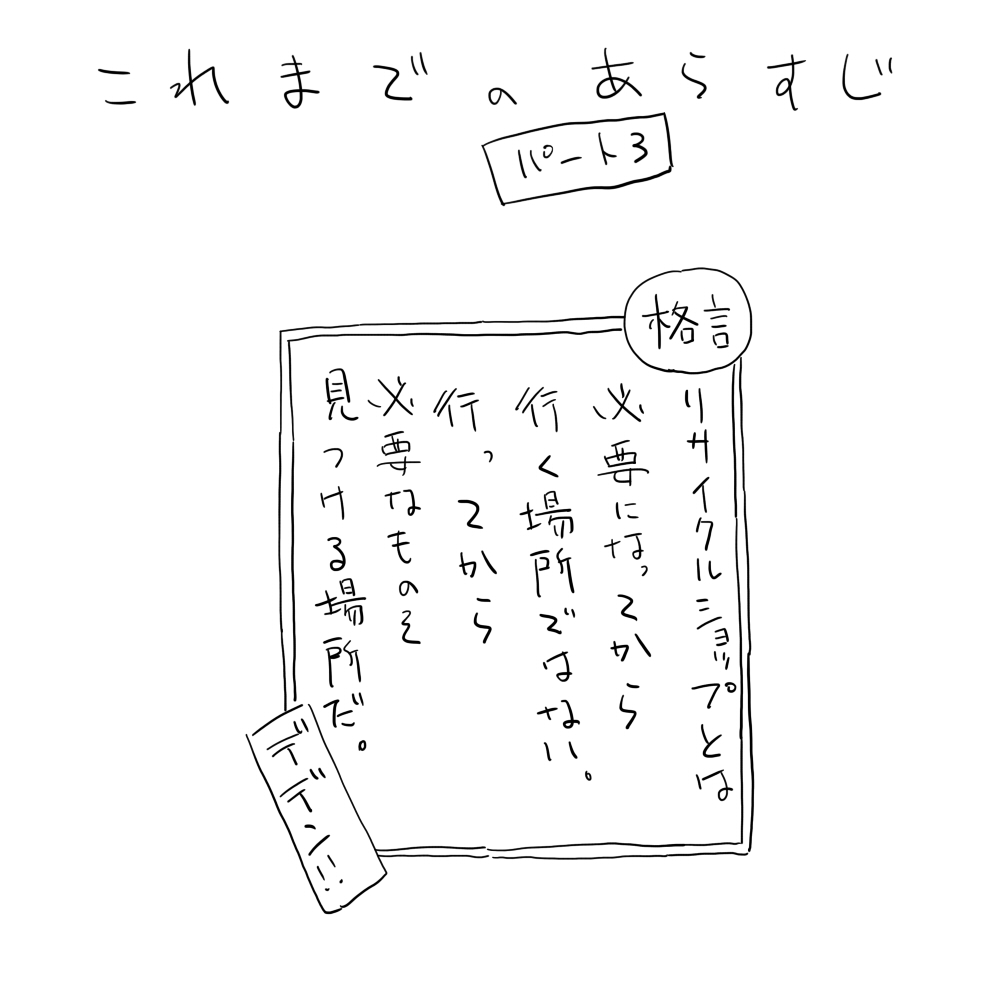 これまでのあらすじ
パート3
格言
リサイクルショップとは
必要になってから
行く場所ではない。
行ってから
必要なものを
見つける場所だ。
デデン!!